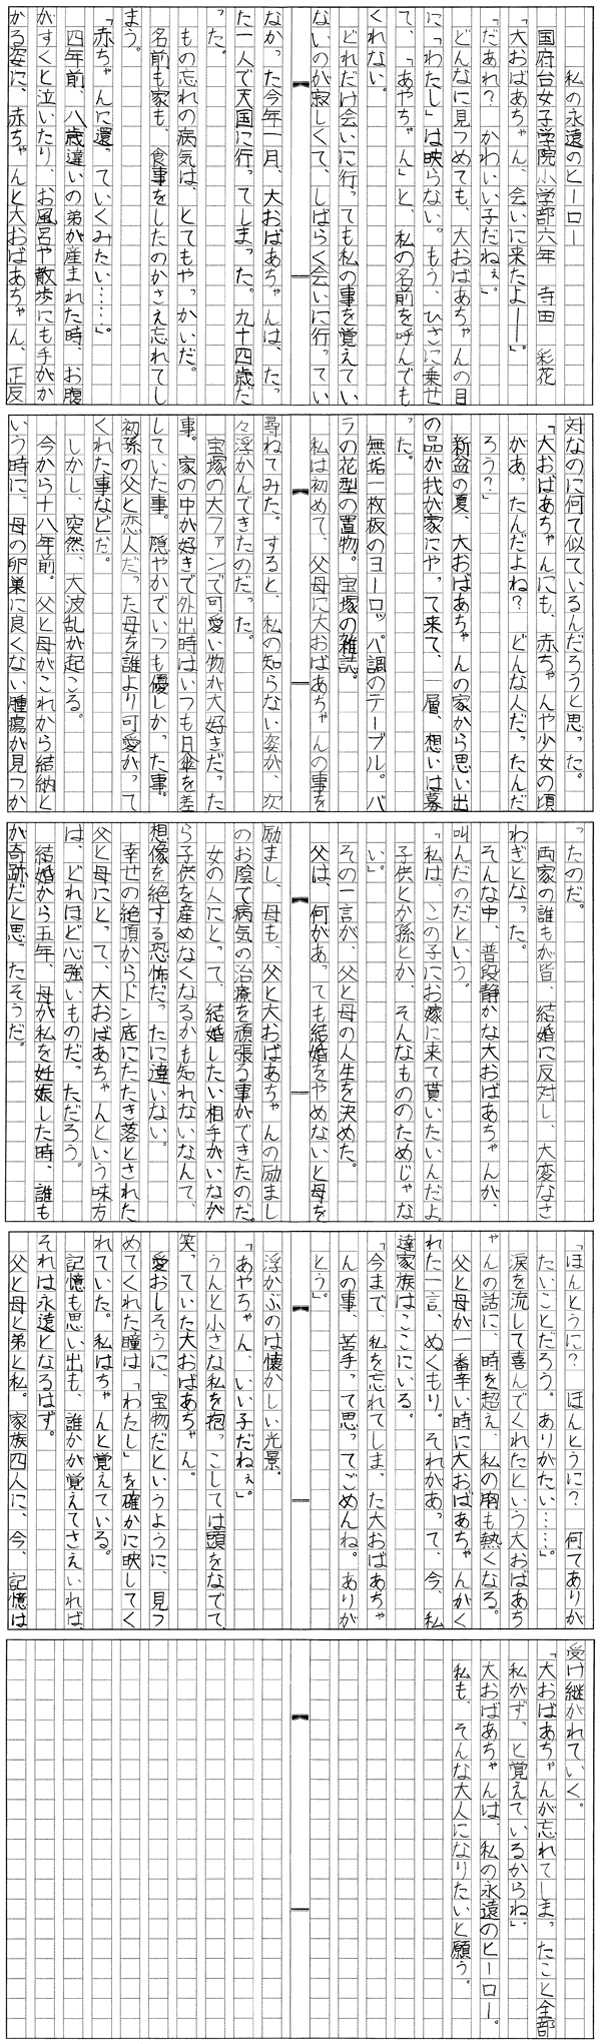 私の永遠のヒーロー
国府台女子学院小学部六年　寺田　彩花
「大おばあちゃん、会いに来たよーー」。
「だあれ？　かわいい子だねぇ」。
どんなに見つめても、大おばあちゃんの目
に「わたし」は映らない。もう、ひざに乗せ
て、「あやちゃん」と、私の名前を呼んでも
くれない。
どれだけ会いに行っても私の事を覚えてい
ないのが寂しくて、しばらく会いに行ってい
なかった今年一月、大おばあちゃんは、たっ
た一人で天国に行ってしまった。九十四歳だ
った。
もの忘れの病気は、とてもやっかいだ。
名前も家も、食事をしたのかさえ忘れてし
まう。
「赤ちゃんに還っていくみたい……」。
四年前、八歳違いの弟が産まれた時、お腹
がすくと泣いたり、お風呂や散歩にも手がか
かる姿に、赤ちゃんと大おばあちゃん、正反
対なのに何て似ているんだろうと思った。
「大おばあちゃんにも、赤ちゃんや少女の頃
があったんだよね？　どんな人だったんだ
ろう？」
新盆の夏、大おばあちゃんの家から思い出
の品が我が家にやって来て、一層、想いは募
った。
無垢一枚板のヨーロッパ調のテーブル。バ
ラの花型の置物。宝塚の雑誌。
私は初めて、父母に大おばあちゃんの事を
尋ねてみた。すると、私の知らない姿が、次
々浮かんできたのだった。
宝塚の大ファンで可愛い物が大好きだった
事。家の中が好きで外出時はいつも日傘を差
していた事。隠やかでいつも優しかった事。
初孫の父と恋人だった母を誰より可愛がって
くれた事などだ。
しかし、突然、大波乱が起こる。
今から十八年前。父と母がこれから結納と
いう時に、母の卵巣に良くない腫瘍が見つか
ったのだ。
両家の誰もが皆、結婚に反対し、大変なさ
わぎとなった。
そんな中、普段静かな大おばあちゃんが、
叫んだのだという。
「私は、この子にお嫁に来て貰いたいんだよ。
子供とか孫とか、そんなもののためじゃな
い」
その一言が、父と母の人生を決めた。
父は、何があっても結婚をやめないと母を
励まし、母も、父と大おばあちゃんの励まし
のお陰で病気の治療を頑張る事ができたのだ。
女の人にとって、結婚したい相手がいなが
ら子供を産めなくなるかも知れないなんて、
想像を絶する恐怖だったに違いない。
幸せの絶頂からドン底にたたき落とされた
父と母にとって、大おばあちゃんという味方
は、どれほど心強いものだっただろう。
結婚から五年、母が私を妊娠した時、誰も
が奇跡だと思ったそうだ。
「ほんとうに？　ほんとうに？　何てありが
たいことだろう。ありがたい……」。
涙を流して喜んでくれたという大おばあち
ゃんの話に、時を超え、私の胸も熱くなる。
父と母が一番辛い時に大おばあちゃんがく
れた一言、ぬくもり。それがあって、今、私
達家族はここにいる。
「今まで、私を忘れてしまった大おばあちゃ
んの事、苦手って思ってごめんね。ありが
とう」。
浮かぶのは懐かしい光景。
「あやちゃん、いい子だねぇ」。
うんと小さな私を抱っこしては頭をなでて、
笑っていた大おばあちゃん。
愛おしそうに、宝物だというように、見つ
めてくれた瞳は「わたし」を確かに映してく
れていた。私はちゃんと覚えている。
記憶も思い出も、誰かが覚えてさえいれば、
それは永遠となるはず。
父と母と弟と私。家族四人に、今、記憶は
受け継がれていく。
「大おばあちゃんが忘れてしまったこと全部
私がずっと覚えているからね」。
大おばあちゃんは、私の永遠のヒーロー。
私も、そんな大人になりたいと願う。